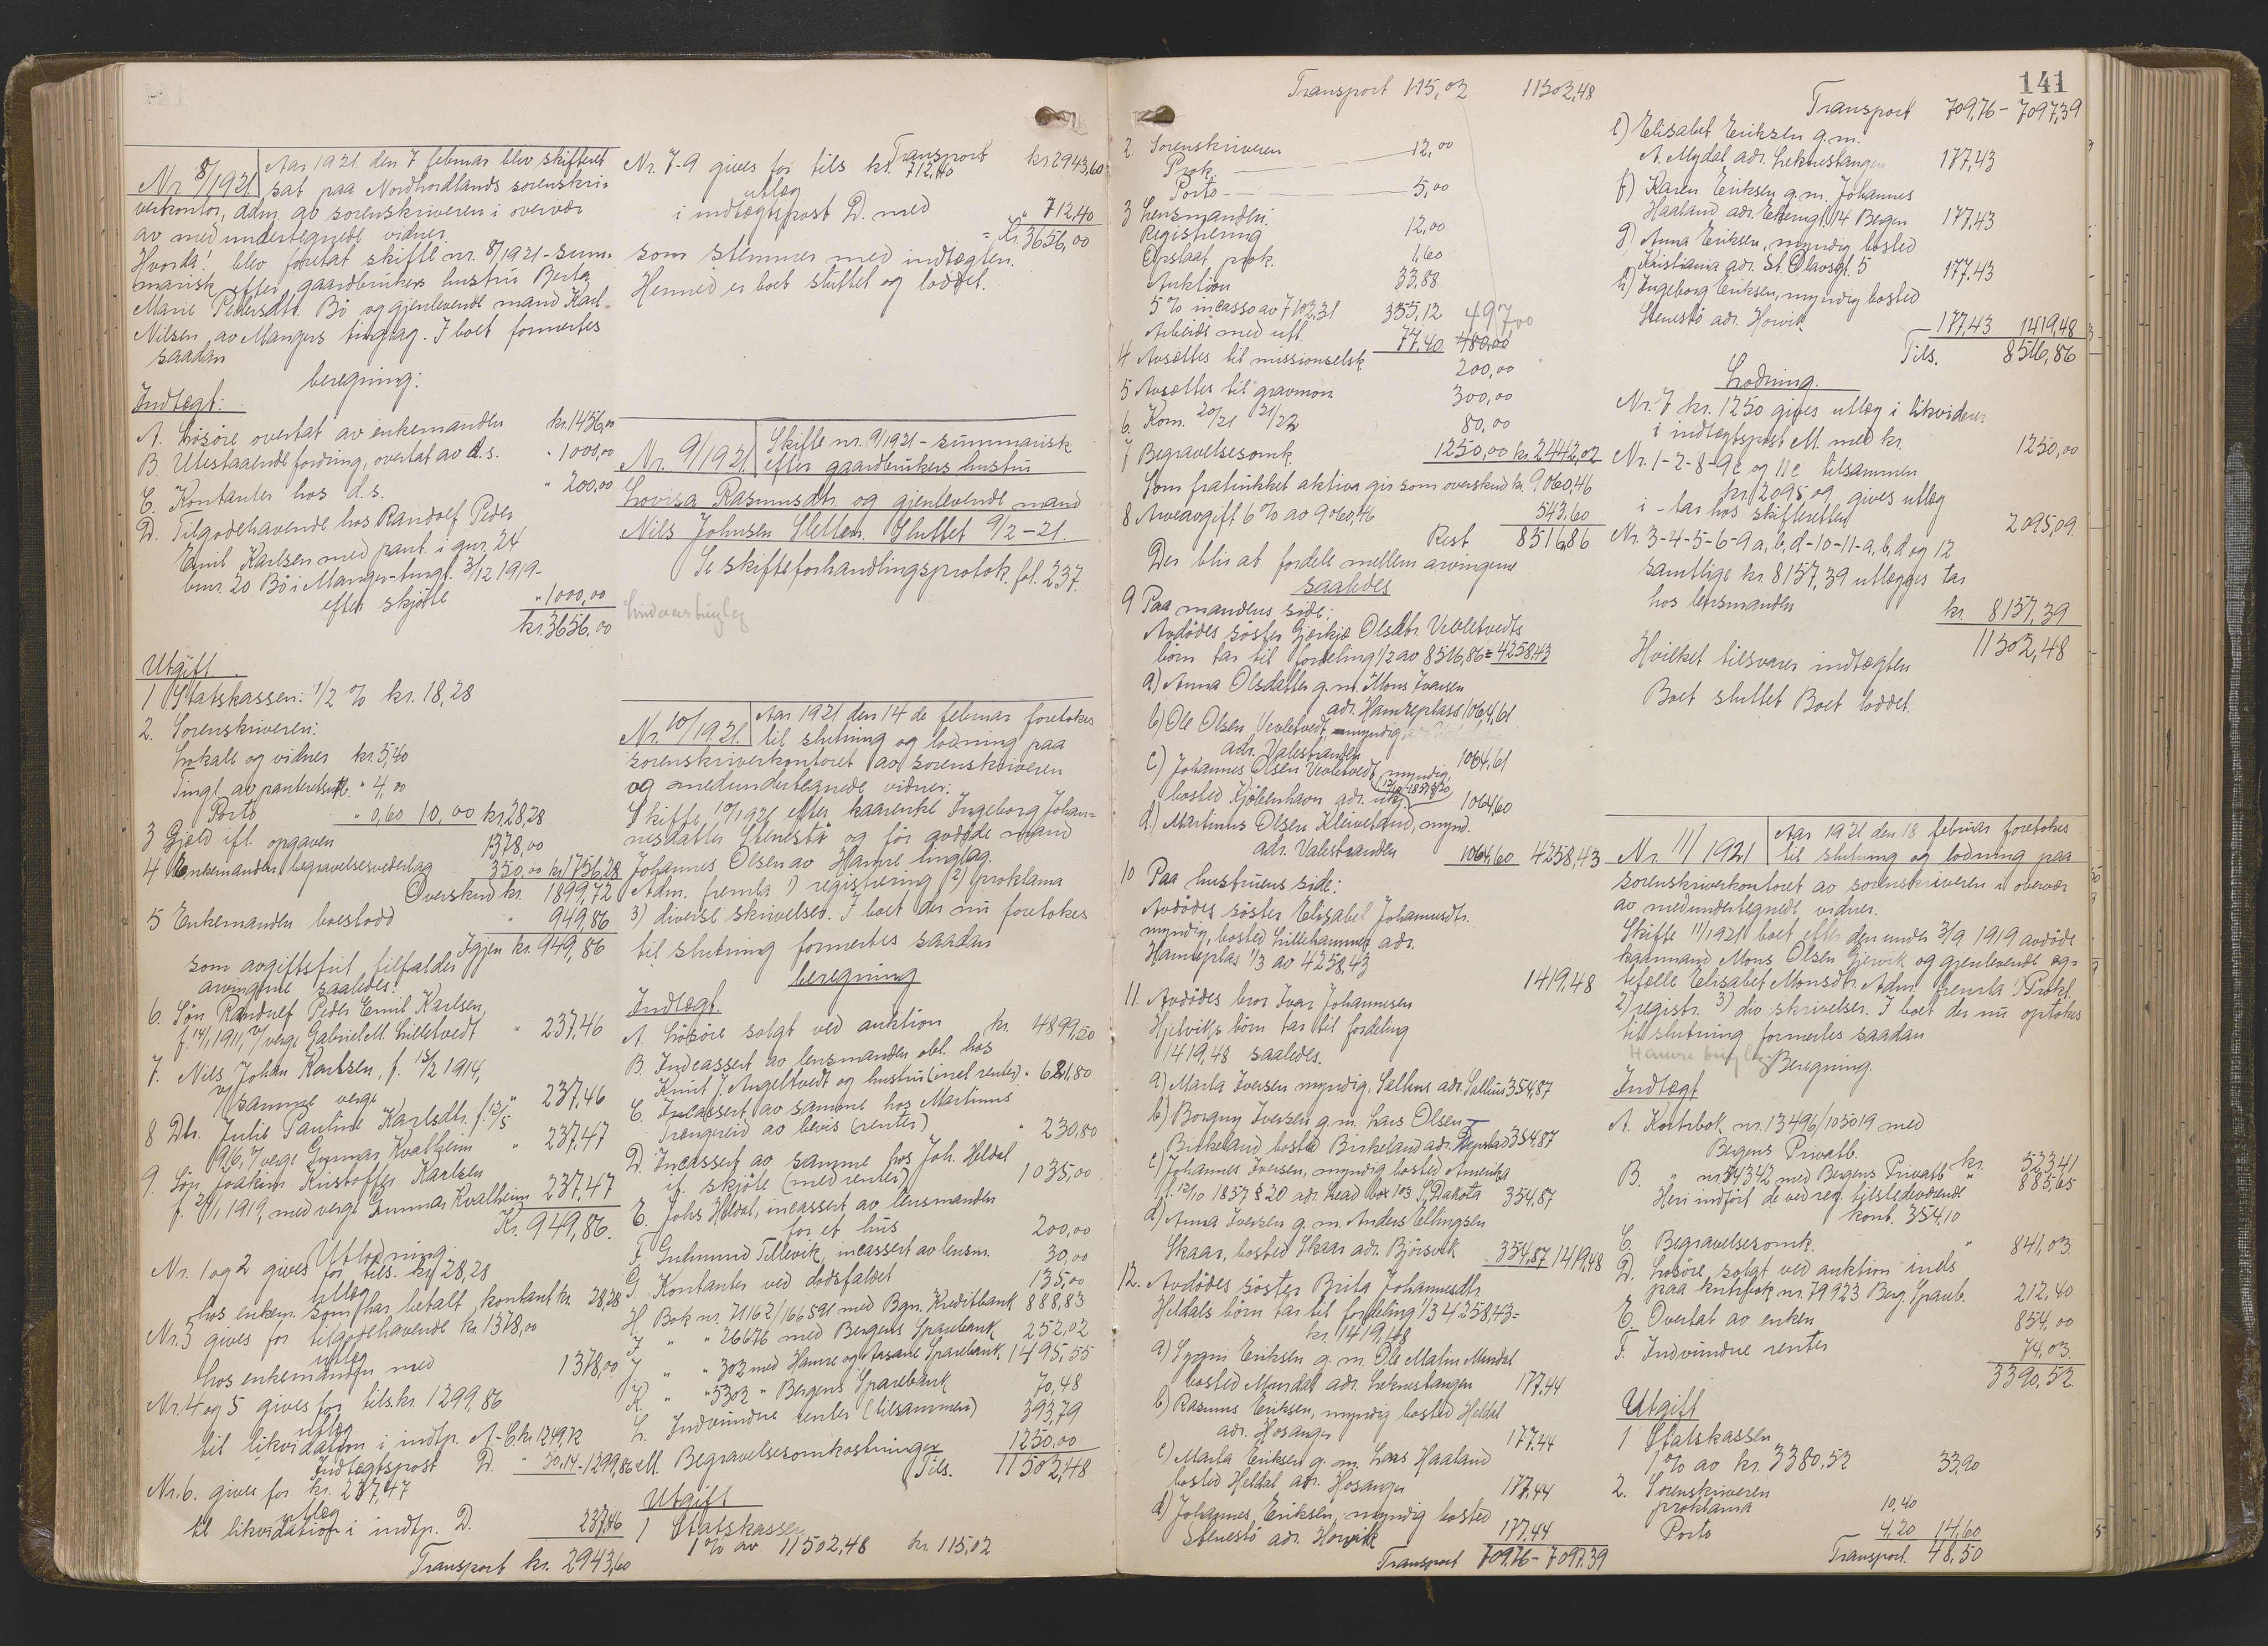 Nr 8/1921 Aar 1921 den 7 februar blev skifteret
sat paa Nordhordlands sorenskri-
verkontor, adm. av sorenskriveren i overvær
av medundertegnede vidner.
Hvorda! blev foretat skifte nr. 8/1921 - sum-
marisk efter gaardbrukers hustru Berta
Marie Pedersdtr. Bö og gjenlevende mand Karl
Nilsen av Mangers tinglag. I boet formertes
saadan
beregning:
Indtægt:
A. Lösöre overtat av enkemanden kr. 1456,00
B. Utestaaende fordring, overtat av d.s. " 1000,00
C. Kontanter hos d.s. " 200,00
D. Tilgodehavende hos Randolf Peder
Emil Karlsen med pant i gnr. 24
bnr. 20 Bö i Manger tingl. 3/12 1919-
efter skjöte " 1000,00
kr. 3656,00
Utgift
1 Statskassen: 1/2 % kr. 18,28
2. Sorenskriveren:
Lokale og vidner kr 5,40
Tingl. av panteretsutl. " 4,00
Porto " 0,60 10,00 kr 28,28
3 Gjeld ifl. opgaven 1378,00
4 Enkemanden begravelsesvederlag 350,00 kr 1756,28
Overskud kr. 1899,72
5 Enkemanden boeslodd " 949,86
Igjen kr. 949,86
som avgiftsfrit tilfalder
arvingene saaledes:
6. Sön Randulf Peder Emil Karlsen,
f. 14/1 1911, v/ verge Gabriel M. Lilletvedt " 237,46
7. Nils Johan Karlsen, f. 15/2 1914,
v/ samme verge " 237,46
8 Dtr. Julie Pauline Karlsdtr. f. 12/5
1916, v/ verge Gunnar Kvalheim " 237,47
9. Sön Joakim Kristoffer Karlsen
f. 21/1 1919, med verge Gunnar Kvalheim 237,47
Kr. 949,86.
Utlodning
Nr. 1 og 2 gives for tils. kr 28,28
utlæg
hos enkem. som har betalt kontant kr. 28,28
Nr. 3 gives for tilgodehavende kr. 1378,00
utlæg
hos enkemanden med 1378,00
Nr. 4 og 5 gives for tils. kr. 1299,86
utlæg
til likvidation i indtp. A-C. kr. 1249,72
Indtægtspost D. " 50,14 - 1299,86
Nr. 6. gives for kr. 237,47
utlæg
til likvidation i indtp. D. 237,46
Transport kr. 2943,60
Transport kr 2943,60
Nr. 7-9 gives for tils kr. 712,40
utlæg
i indtægtspost D. med " 712,40
= Kr. 3656,00
som stemmer med indtægten.
Hermed er boet sluttet og loddet.
Nr. 9/1921. Skifte nr. 9/1921 - summarisk
efter gaardbrukers hustru
Lovisa Rasmusdtr. og gjenlevende mand
Nils Johnsen Sletten. Sluttet 9/2-21.
Se skifteforhandlingsprotok. fol. 237.
Nr. 10/1921. Aar 1921 den 14 de februar foretokes
til slutning og lodning paa
sorenskriverkontoret av sorenskriveren
og medundertegnede vidner.
Skifte 10/1921 efter kaarenke Ingeborg Johan-
nesdatter Stenestö og för avdöde mand
Johannes Olsen av Hamre tinglag.
Adm. fremla 1) registrering 2) proklama
3) diverse skrivelser. I boet der nu foretokes
til slutning formertes saadan
beregning
Indtægt.
A. Lösöre solgt ved auktion kr. 4899,50
B. Indcassert av lensmanden obl. hos
Knut J. Angeltvedt og hustru (incl renter) " 621,80
C. Incassert av samme hos Martinus
Trengereid av bevis (renter) " 230,80
D. Incassert av samme hos Joh. Heldal
if. skjöte (med renter) 1035,00
E. Johs Heldal, incassert av lensmanden
for et hus 200,00
F. Gudmund Tellevik, incassert av lensm. 30,00
G. Kontanter ved dödsfaldet 135,00
H. Bok nr. 71162/166591 med Bgn. Kreditbank 888,83
I " " 26676 med Bergens Sparebank 252,02
J " " 302 med Hamre og Aasane Sparebank 1495,55
K. " " 5302 " Bergens Sparebank 70,48
L. Indvundne renter (tilsammen) 393,79
M. Begravelsesomkostninger 1250,00
Tils. 11502,48
Utgift
1 Statskassen
1 % av 11502,48 kr 115,02
141
Transport 115,02 11502,48
2. Sorenskriveren 12,00
Prok.
Porto 5,00
3 Lensmanden:
Registrering 12,00
Opslaat prok. 1,60
Auktion 33,88
5 % incasso av 7102,31 355,12 497,00
Arbeide med utl. 77,40 480,00
4 Avsættes til missionselsk. 200,00
5 Avsættes til gravmon 300,00
6. Kom. 20/21 21/22 80,00
7 Begravelsesomk. 1250,00 kr. 2442,02
Som fratrukket aktiva gir som overskud kr. 9060,46
8 Arveavgift 6 % av 9060,46 543,60
Rest 8516,86
Der blir at fordele mellem arvingerne
saaledes
9 Paa mandens side:
Avdödes söster Gjerkje Olsdtr. Vevletvedts
börn tar til fordeling 1/2 av 8516,86 = 4258,43
a) Anna Olsdatter g.m. Mons Ivarsen
adr. Hamreplass 1064,61
b) Ole Olsen Vevletvedt, myndig
adr. Valestranden 1064,61
c) Johannes Olsen Vevletvedt, myndig,
bosted Kjöbenhavn adr. ukj. (12/10 1857 § 20) 1064,60
d.) Martinus Olsen Kleiveland, mynd.
adr. Valestranden 1064,60 4258,43
10 Paa hustruens side:
Avdödes söster Elisabet Johannesdtr.
myndig, bosted Lillehammer adr.
Hamreplas 1/3 av 4258,43 1419,48
11. Avdödes bror Ivar Johannesen
Hjelviks börn tar til fordeling
1419,48 saaledes.
a) Marta Iversen myndig, Salhus adr. Salhus 354,87
b) Borgny Iversen g.m. Lars Olsen
Birkeland, bosted Birkeland adr. 354,87
c) Johannes Iversen, myndig bosted Amerika
f. 12/10 1857 § 20 adr. Lead box 103 S. Dakota 354,87
d) Anna Iversen g.m. Anders Ellingsen
Skaar, bosted Skaar adr. Bjørsvik 354,87 1419,48
12. Avdödes söster Brita Johannesdtr.
Heldals börn tar til fordeling 1/3 4258,43 =
kr. 1419,48
a) Sygni Eriksen g.m. Ole Malin Mundal
bosted Mundal adr. Leknestangen 177,44
b) Rasmus Eriksen, myndig bosted Heldal
adr. Hosanger 177,44
c) Marta Eriksen g.m. Lars Haaland
bosted Heldal adr. Hosanger 177,44
d) Johannes Eriksen, myndig bosted
Stenestö adr. Horvik 177,44
Transport 709,76 - 7097,39
Transport 709,76 - 7097,39
e) Elisabet Eriksen g.m.
A. Mydal adr. Leknestangen 177,43
f) Karen Eriksen g.m. Johannes
Haaland adr. 14 Bergen 177,43
g) Anna Eriksen, myndig bosted
Kristiania adr. St. Olavsgt. 5 177,43
h) Ingeborg Eriksen, myndig bosted
Stenestö adr. Horvik 177,43 1419,48
Tils. 8516,86
Lodning.
Nr. 7 kr. 1250 gives utlæg i likvideres
i indtægtspost M. med kr. 1250,00
Nr. 1-2-8-9c og 11c tilsammen
kr 2095,09 gives utlæg
i - tar hos skifteretten 2095,09
Nr. 3-4-5-6-9a, b, d-10-11-a, b, d og 12
samtlige kr. 8157,39 utlægges tar
hos lensmanden kr. 8157,39
11502,48
Hvilket tilsvarer indtægten
Boet sluttet Boet loddet.
Nr 11/1921 Aar 1921 den 18 februar foretokes
til slutning og lodning paa
sorenskriverkontoret av sorenskriveren i overvær
av medundertegnede vidner.
Skifte 11/1921 boet efter den under 3/9 1919 avdöde
kaarmand Mons Olsen Gjervik og gjenlevende eg-
tefelle Elisabet Monsdtr. Adm. fremla 1) Prokl.
2) registr. 3) div skrivelser. I boet der nu optokes
til slutning formertes saadan
Beregning.
Indtægt
A. Kontrabok nr. 13496/103019 med
Bergens Privatb. kr. 523,41
B. " nr. 34342 med Bergens Privatb " 885,65
Heri indført de ved reg. tilstedeværende
kont. 354,10
C. Begravelsesomk. " 841,03.
D. Lösöre, solgt ved auktion inds
paa kntrbok nr. 79923 Berg. Spareb. 212,40
E. Overtat av enken 854,00
F. Indvundne renter 74,03.
3390,52.
Utgift
1 Statskassen
1 % av kr. 3380,52 33,90
2. Sorenskriveren
proklama 10,40
Porto 4,20 14,60
Transport. 48,50